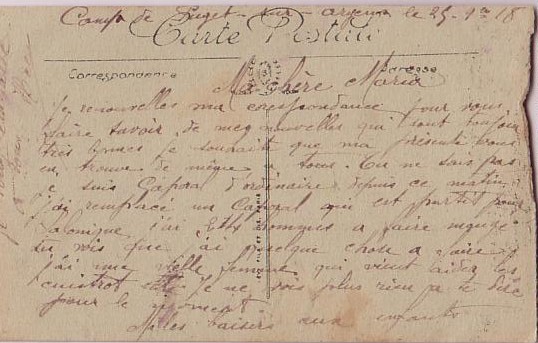 Camp de Puget sur argens le 25-1er 18
Carte Postale
Correspondance Adresse
Ma chère Maria
Je renouvelles ma corespondance pour vous
faire savoir de mes nouvelles qui sont toujour
très bonnes je souhait que ma présente vous
en trouve de même a tous. Tu ne sais pas
je suis Caporal d'ordinaire depuis ce matin
j'ai remplacé un Caporal qui est partit pour
Salonique j'ai hommes a faire
tu vois que j'ai quelque chose a faire
j'ai une vielle femme qui vient aider les
cuistot je ne vois plus rien a te dire
pour le moment
Milles baisers aux enfants